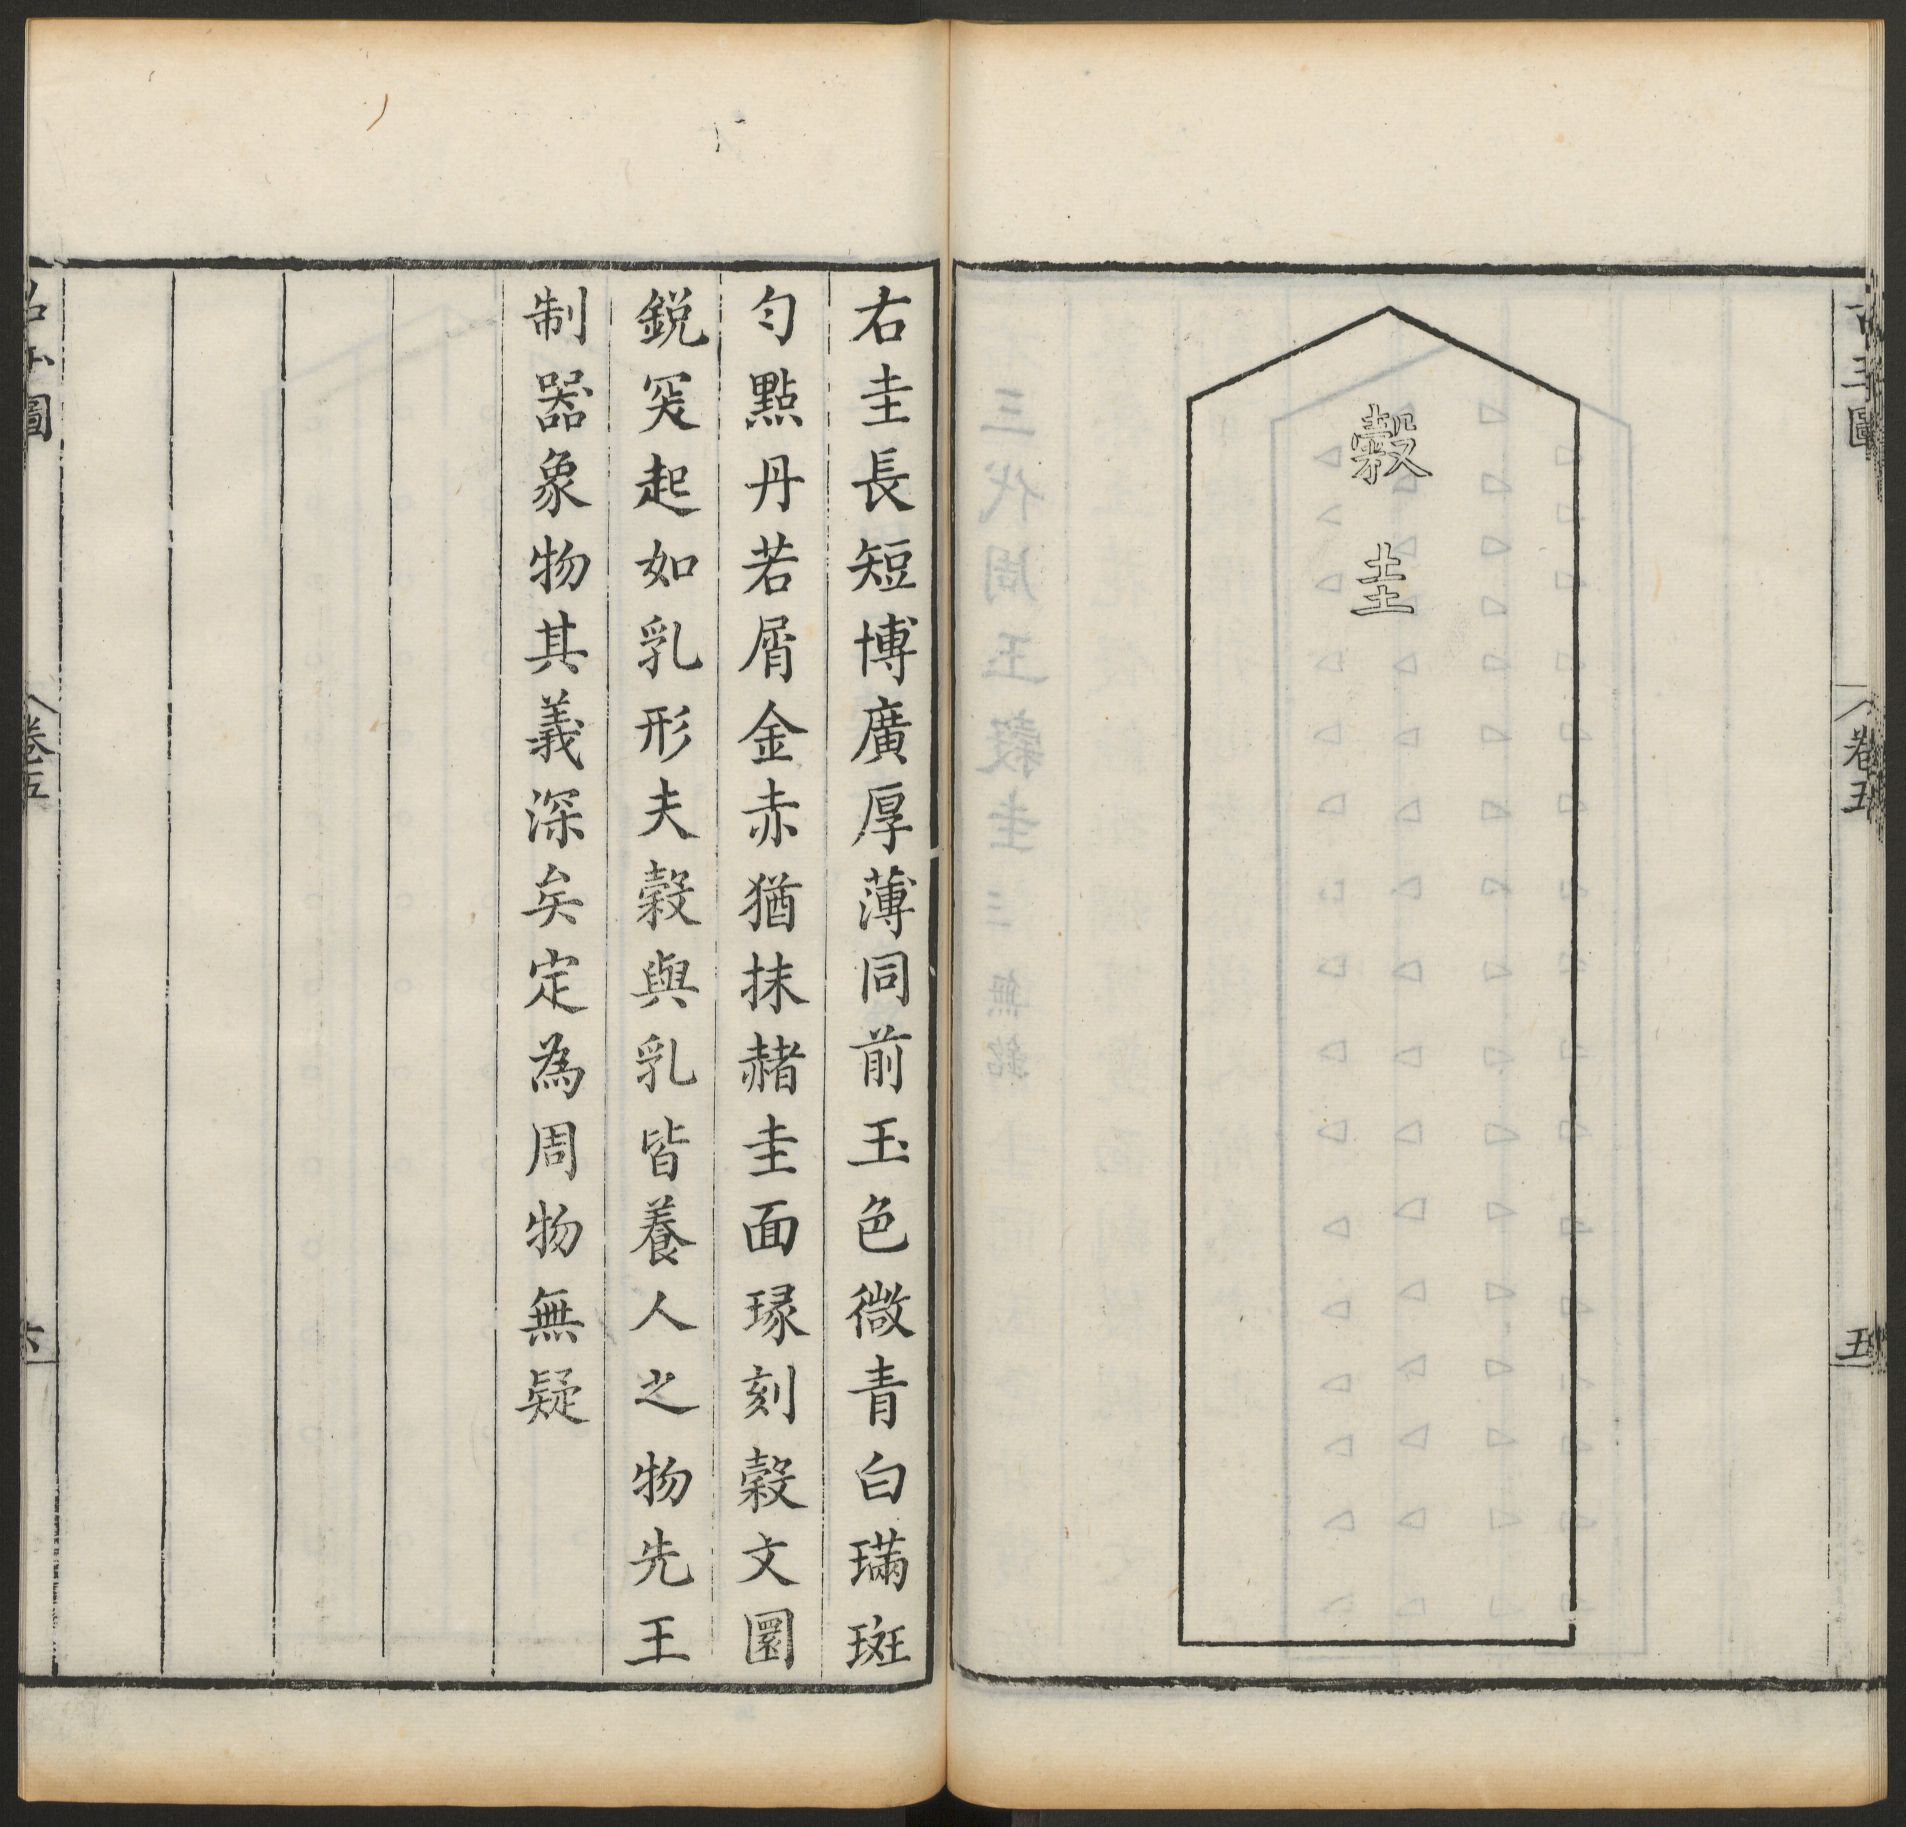 古玉圖
卷五
五
穀圭
右圭長短博廣厚薄同前玉色微青白璊斑
勻點丹若屑金赤猶抹赭圭面瑑刻穀文圜
銳突起如乳形夫穀與乳皆養人之物先王
制器象物其義深矣定為周物無疑
古玉圖
卷五
六